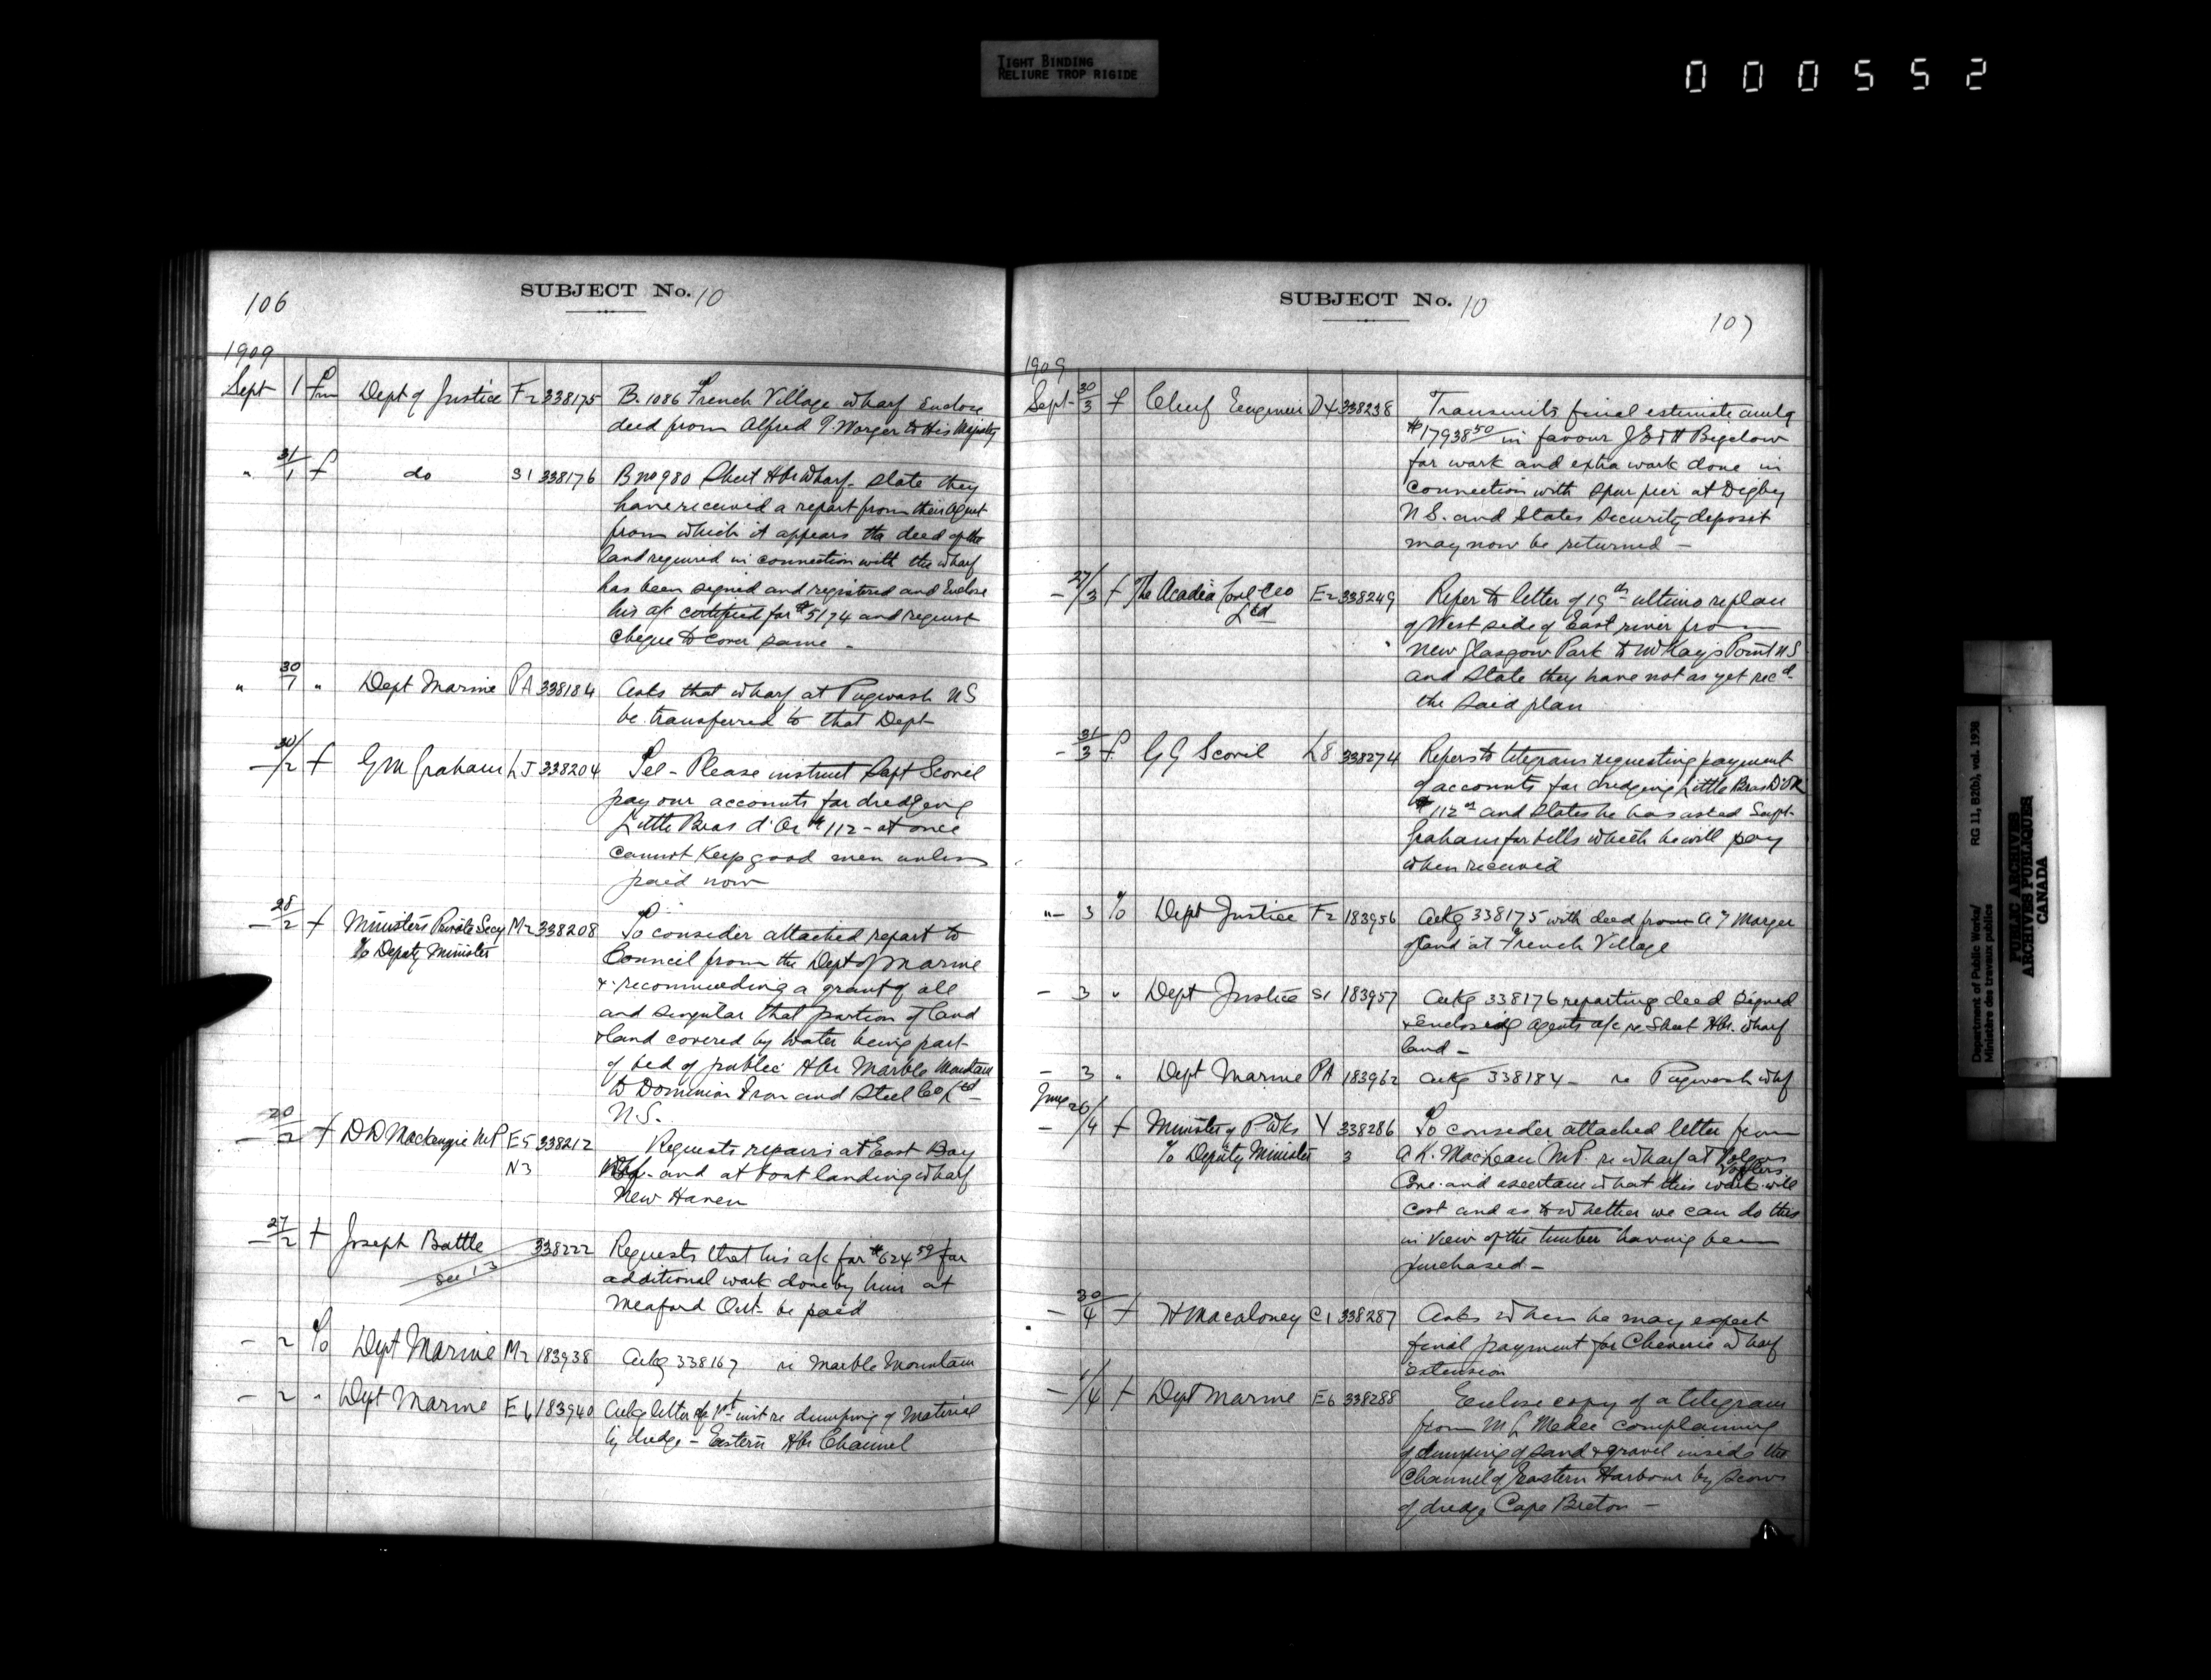 TIGHT BINDING
RELIURE TROP RIGIDE
000552
106
SUBJECT No. 10
1909
Sept 1 Fm Dept of Justice F2 338175 B. 1086 French Village wharf Enclose
deed from Alfred T. Morger to His Majesty
" 31/1 f do S1 338176 B no 980 Sheet Hbr Wharf - State they
have received a report from their agent
from which it appears the deed of the
land required in connection with the wharf
has been signed and registered and Enclose
his a/c certified for $51 74 and request
cheque to cover same -
" 30/1 " Dept Marine PA 338184 Asks that wharf at Pugwash NS
be transferred to that Dept
- 30/2 f G M Graham LJ 338204 Tel - Please instruct Capt Scovil
pay our accounts for dredging
Little Bras d'Or # 112 - at once
cannot keep good men unless
paid now
- 28/2 f Ministers Private Secy M2 338208 To consider attached report to
To Deputy Minister
Council from the Dept of Marine
& recommending a grant of all
and singular that portion of land
& land covered by water being part
of bed of public Hbr Marble Mountain
to Dominion Iron and Steel Co Ltd -
N.S.
- 20/2 f D D Mackenzie MP E5 338212 Requests repairs at East Bay
N3 Whf - and at boat landing wharf
New Haven
- 27/2 f Joseph Battle 338222 Requests that his a/c for $624 59 for
see 13
additional work done by him at
Meaford Ont - be paid
- 2 To Dept Marine M2 183938 Ackg 338167 re Marble Mountain
- 2 " Dept Marine E6 183940 Ackg letter of 1st inst re dumping of Material
by dredge - Eastern Hbr Channel
SUBJECT No. 10
107
1909
Sept - 30/3 f Chief Engineer D4 338238 Transmits final estimate amtg
$17938 50 in favour J E & H Bigelow
for work and extra work done in
connection with spur pier at Digby
N S. and States Security deposit
may now be returned -
- 27/3 f The Acadia Coal Co E2 338249 Refer to letter of 19th ultimo re plan
Ltd
of West side of East river from
New Glasgow Park to McKays Point NS
and State they have not as yet recd
the said plan
- 31/3 f G G Scovil L8 338274 Refers to telegram requesting payment
of accounts for dredging Little Bras D'Or
# 112 and States he has asked Supt -
Graham for bills which he will pay
when received
"- 3 To Dept Justice F2 183956 Ackg 338175 with deed from A T Marger
of land at French Village
- 3 " Dept Justice S1 183957 Ackg 338176 reporting deed signed
& Enclosing agents a/c re Sheet Hbr. wharf
land -
- 3 " Dept Marine PA 183962 Ackg 338184 - re Pugwash whf
June 26/
- /4 f Minister of P Wks V 338286 To consider attached letter from
To Deputy Minister 3 A K. MacLean M.P. re wharf at
Voglers
Cove and ascertain what this work will
cost and as to whether we can do this
in view of the timber having been
purchased -
- 30/4 f H Macaloney C1 338287 Asks when he may expect
final payment for Cheverie Wharf
extension
- 1/4 f Dept Marine E6 338288 Enclose copy of a telegram
from M L complaining
of dumping of sand & gravel inside the
Channel of Eastern Harbour by scows
of dredge Cape Breton -
Department of Public Works/ RG 11, B2(b), vol. 1938
Ministère des travaux publics
PUBLIC ARCHIVES
ARCHIVES PUBLIQUES
CANADA